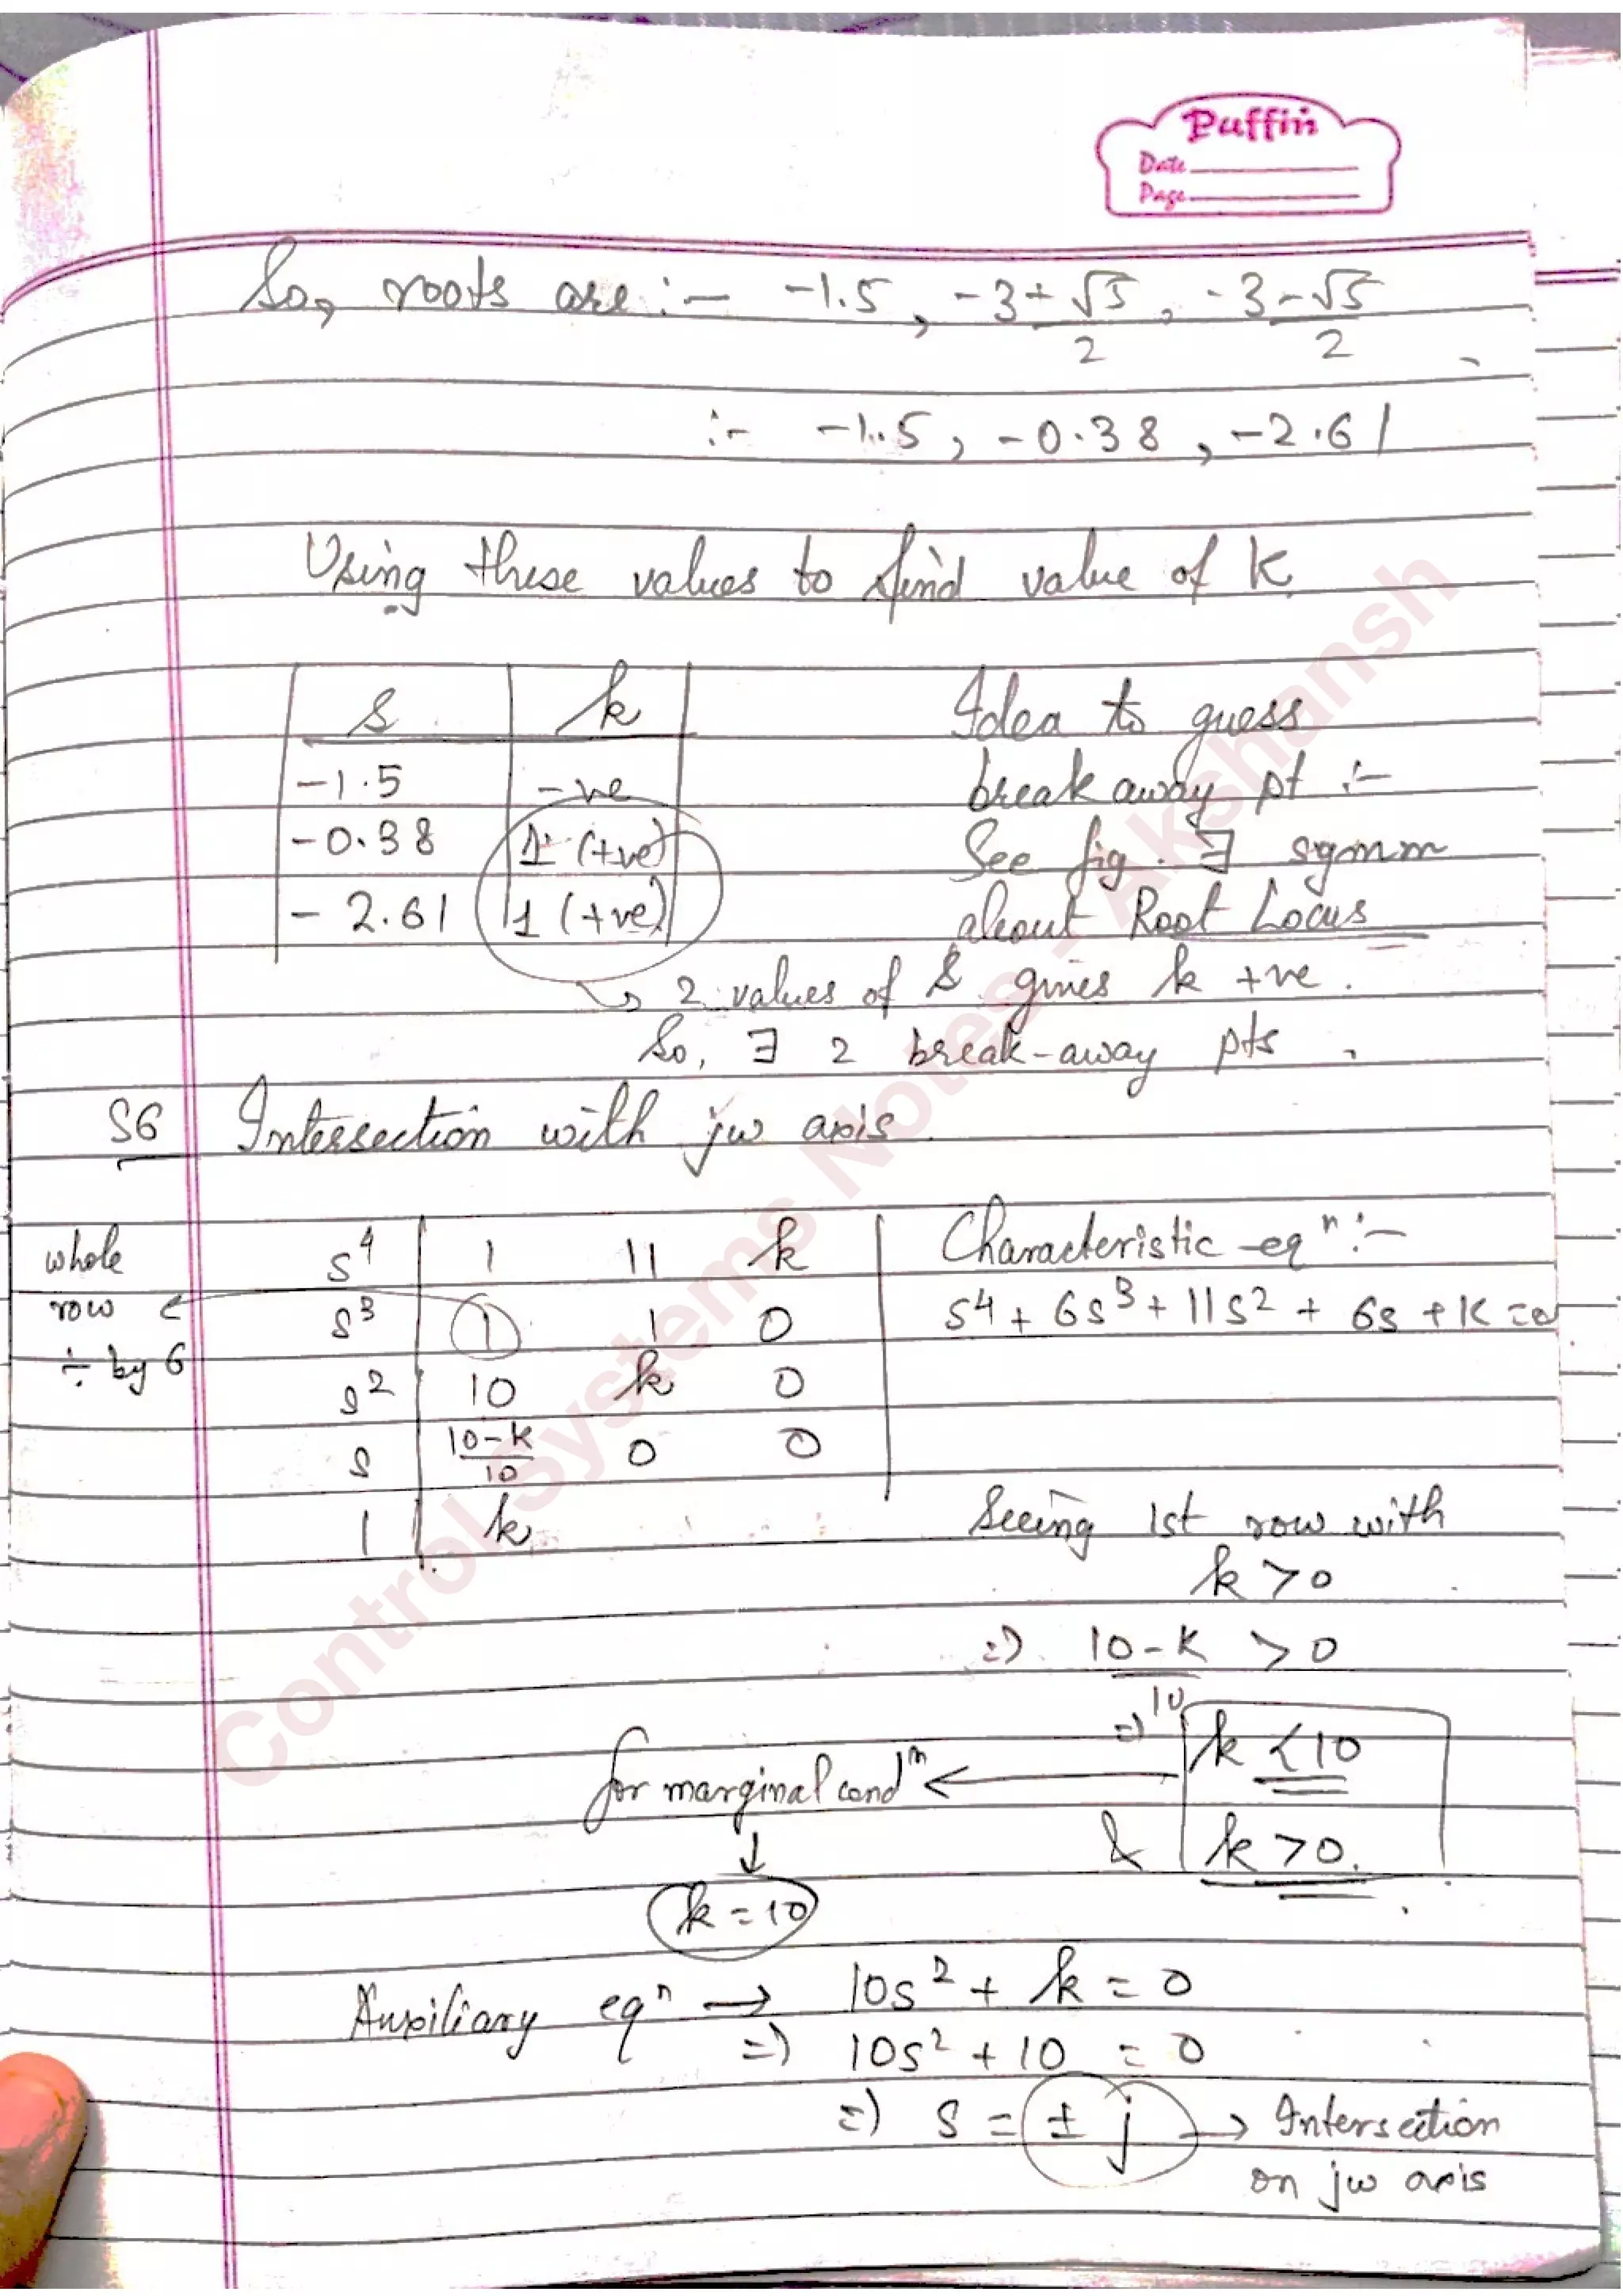 Puffin
Date
Page
So, roots are :- -1.5, -3+√5/2, -3-√5/2
:- -1.5, -0.38, -2.61
Using these values to find value of K.
s k
-1.5 -ve
-0.38 1 (+ve)
-2.61 1 (+ve)
Idea to guess
break away pt :-
See fig. ∃ symm
about Root Locus
↳ 2 values of s gives k +ve.
So, ∃ 2 break-away pts.
S6 Intersection with jw axis
whole
row
÷ by 6
s⁴ 1 11 k
s³ 1 1 0
s² 10 k 0
s 10-k/10 0 0
1 k
Characteristic eqⁿ :-
s⁴ + 6s³ + 11s² + 6s + K = 0
Seeing 1st row with
k > 0
=) 10-k/10 > 0
=) k < 10
for marginal condⁿ ←
& k > 0.
↓
k = 10
Auxiliary eqⁿ → 10s² + k = 0
=) 10s² + 10 = 0
=) s = ± j → Intersection
on jw axis
Control Systems Notes - Akshansh